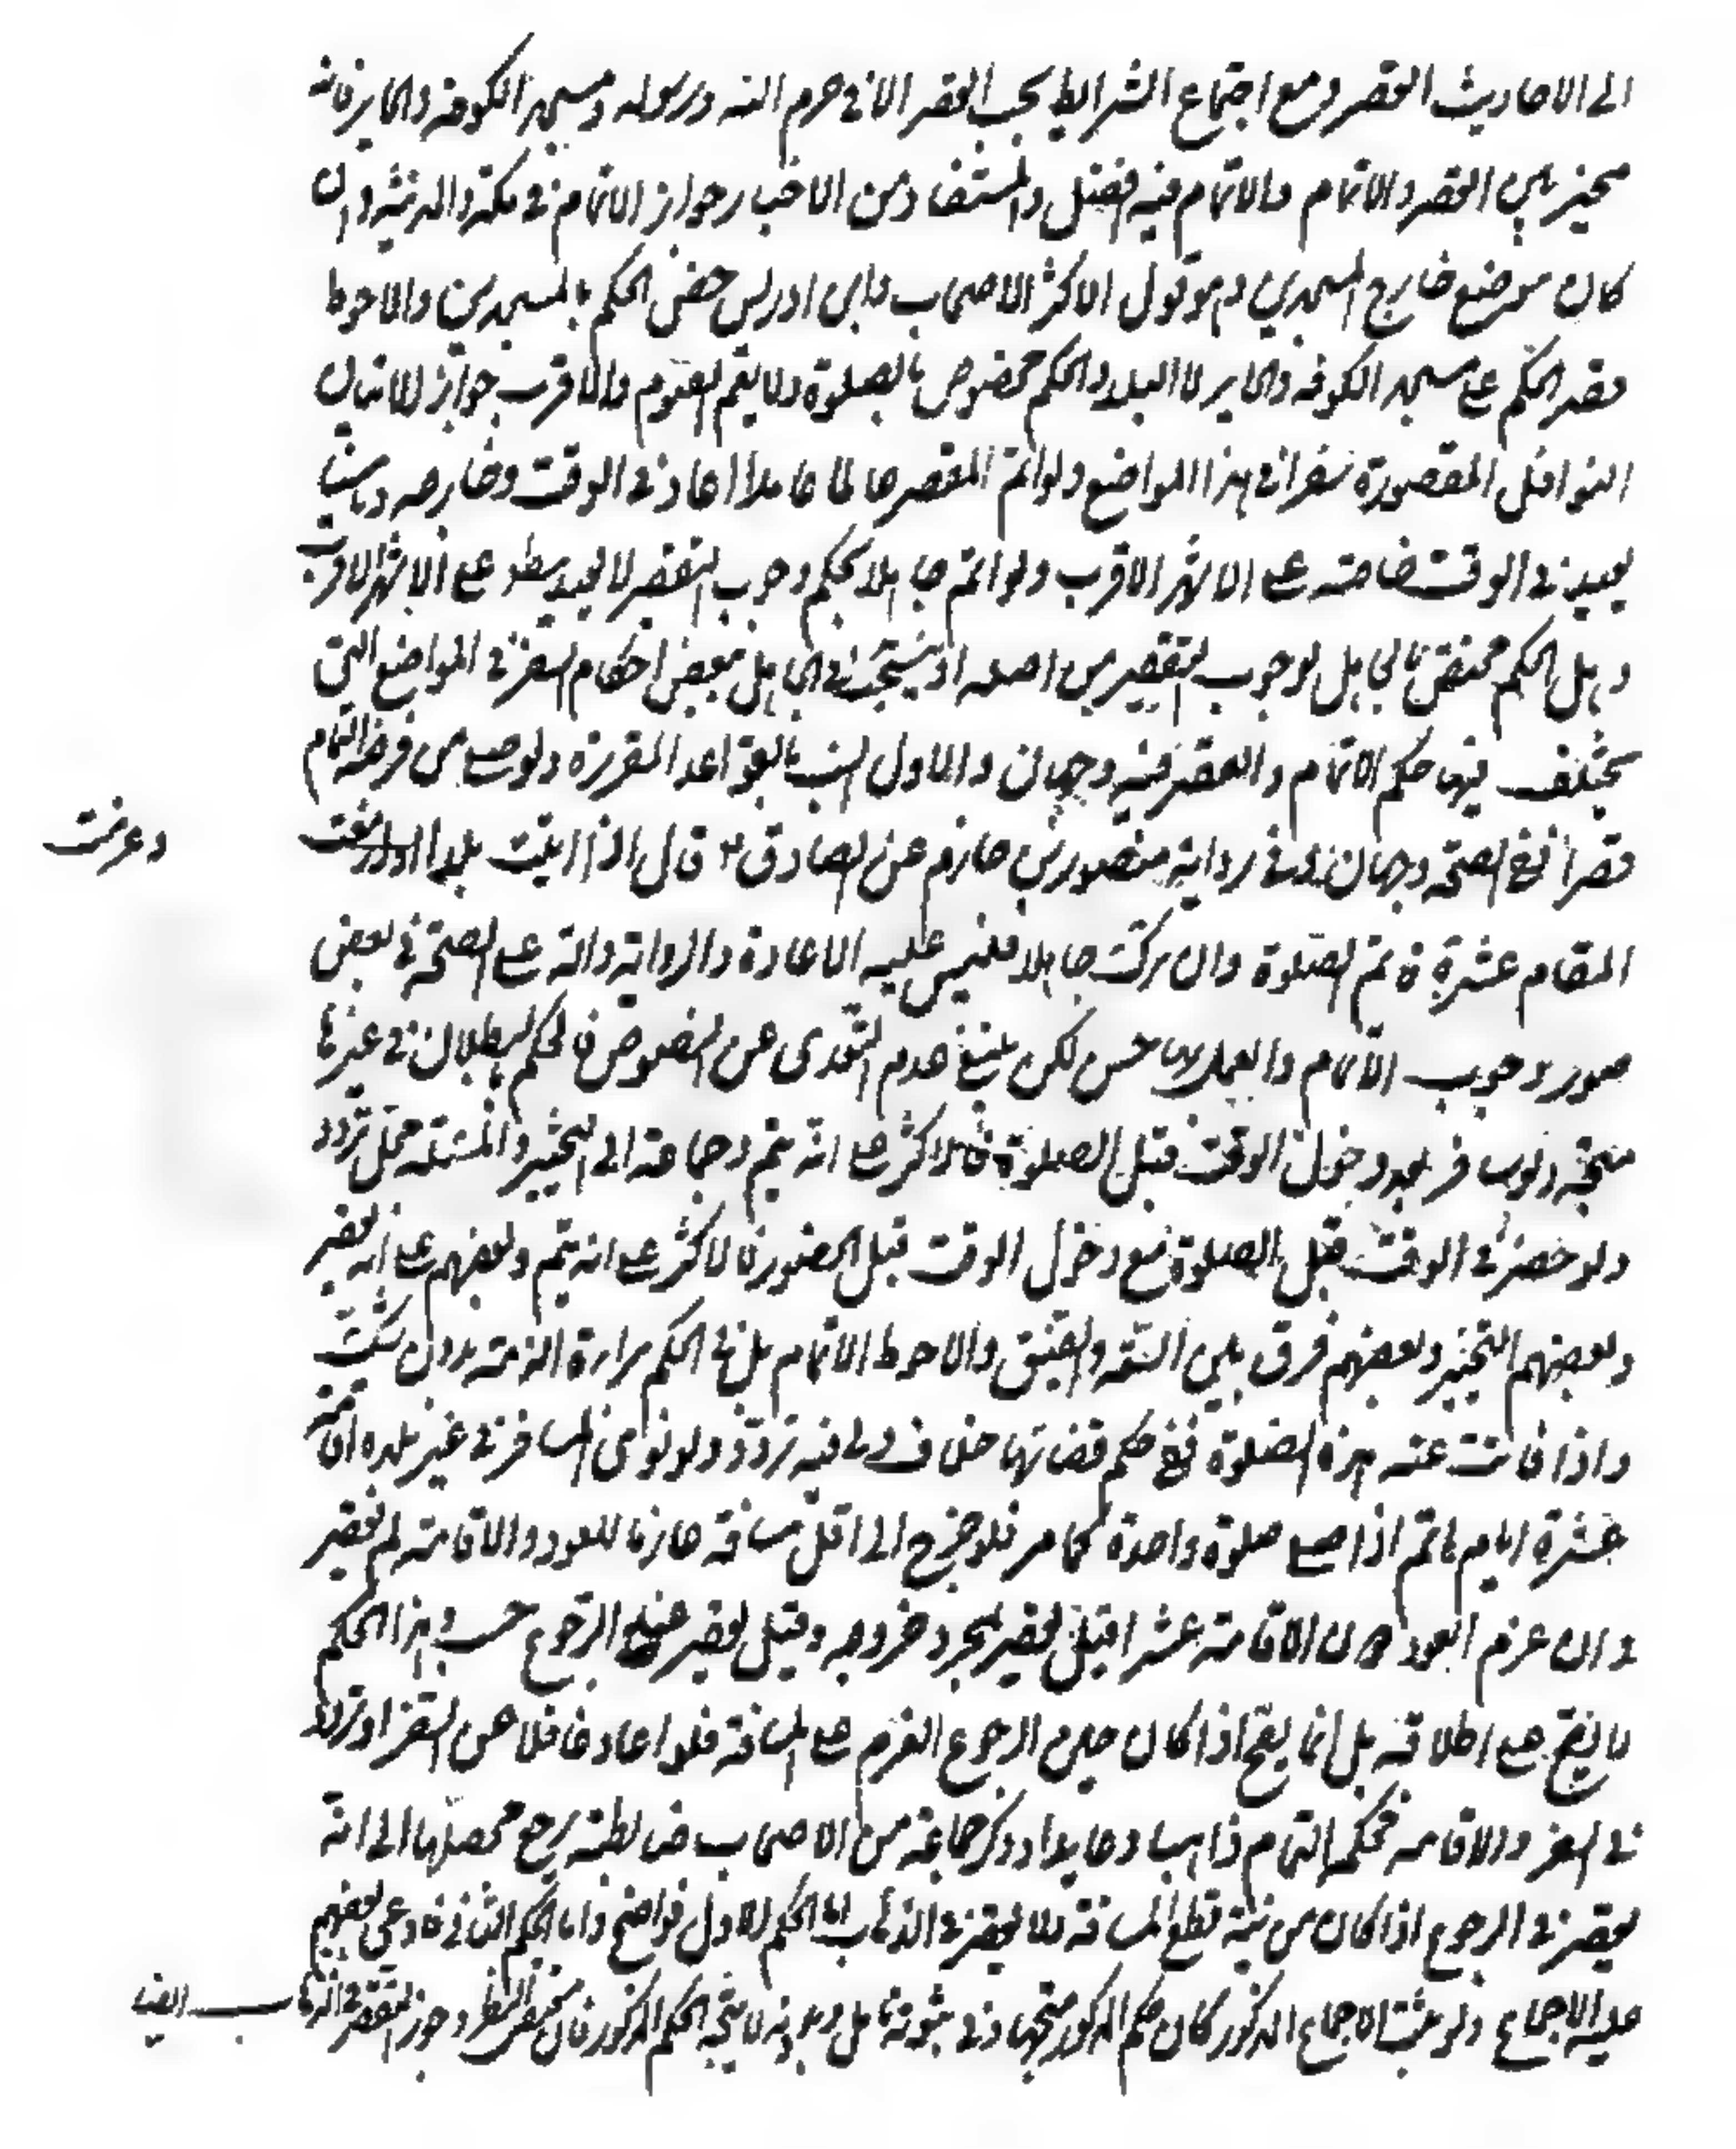 الى الاحاديث القصر ومع اجتماع الشرايط يجب القصر الا في حرم الله ورسوله ومسجد الكوفة والحاير فانه
مخير بين القصر والاتمام والاتمام فيه افضل والمستفاد من الاخبار جواز الاتمام في مكة والمدينة وان
كان موضع خارج المسجدين وهو قول الاكثر الاصحاب وابن ادريس خص الحكم بالمسجدين والاحوط
قصر الحكم على مسجد الكوفة والحاير لا البلد والحكم مخصوص بالصلوة ولا يعم الصوم والاقرب جواز الاتيان
النوافل المقصورة سفرا في هذا المواضع ولو اتم المقصر عالما عامدا اعاد في الوقت وخارجه وناسيا
يعيد في الوقت خاصة على الاشهر الاقرب ولو اتم جاهلا بحكم وجوب التقصير لا يعيد مطلقا على الاشهر الاقرب
وهل الحكم مختص بالجاهل لوجوب التقصير من اصله او ينسحب في الجاهل ببعض احكام السفر في المواضع التي
يختلف فيها حكم الاتمام والقصر فيه وجهان والاول انسب بالقواعد المقررة ولو صلى من فرضه التمام
قصرا ففي الصحة وجهان وفي رواية منصور بن حازم عن الصادق ع قال اذا اتيت بلدا وازمعت
وعزمت
المقام عشرة فاتم الصلوة وان تركت جاهلا فليس عليه الاعادة والرواية دالة على الصحة في بعض
صور وجوب الاتمام والعمل بها حسن لكن ينبغي عدم التعدى عن النصوص فالحكم بالبطلان في غيرها
متجه ولو سافر بعد دخول الوقت قبل الصلوة فالاكثر على انه يتم وجماعة الى التخيير والمسئلة محل تردد
ولو حضر في الوقت قبل الصلوة مع دخول الوقت قبل الحضور فالاكثر على انه يتم وبعضهم على انه يقصر
وبعضهم التخيير وبعضهم فرق بين السعة والضيق والاحوط الاتمام بل في الحكم براءة الذمة بدون شك
واذا فاتت عنه هذه الصلوة ففي حكم قضائها خلاف ولى فيه تردد ولو نوى المسافر في غير بلده اقامة
عشرة ايام اتم اذا صلى صلوة واحدة كما مر فلو خرج الى اقل مسافة عازما للعود والاقامة لم يقصر
وان عزم العود دون الاقامة عشرا قيل يقصر بمجرد خروجه وقيل يقصر عند الرجوع حسب وهذا الحكم
لا يصح على اطلاقه بل انما يصح اذا كان حين الرجوع العزم على المسافة فلو اعاد غافلا عن السفر او ترددا
في السفر والاقامة فحكمه التمام ذاهبا وعايدا وذكر جماعة من الاصحاب ضابطة يرجع محصلها الى انه
يقصر في الرجوع اذا كان من نية قطع المسافة ولا يقصر في الذهاب اما الحكم الاول فواضح واما الحكم الثاني فادعى بعضهم
عليه الاجماع ولو ثبت الاجماع المذكور كان حكم المذكور متجها وفي ثبوته تامل وبدونه لا يتجه الحكم المذكور فان مقتضى النظر وجوز التقصير في الذهاب ايضا